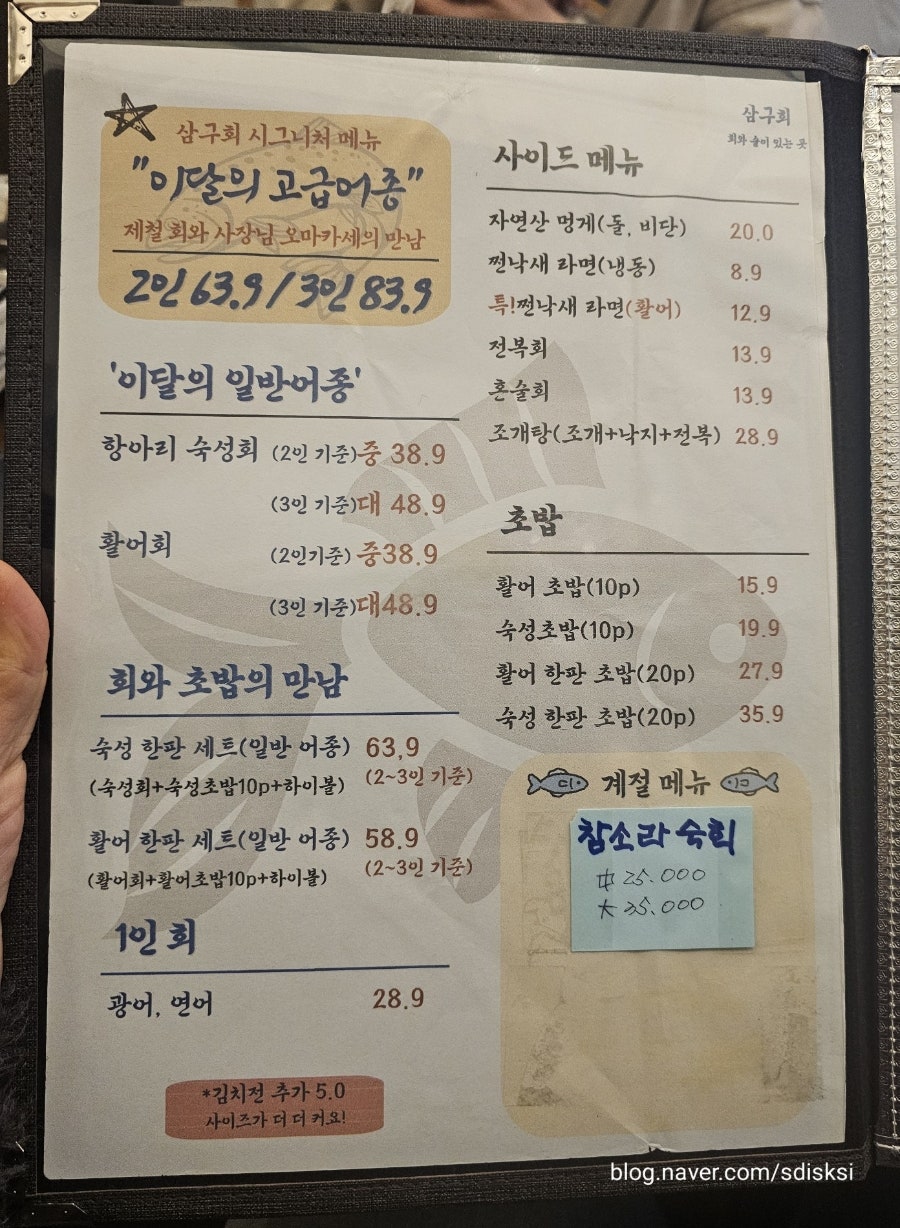 삼구회 시그니처 메뉴
"이달의 고급어종"
제철 회와 사장님 오마카세의 만남
2인 63.9 / 3인 83.9
'이달의 일반어종'
항아리 숙성회 (2인 기준)중 38.9
(3인 기준)대 48.9
활어회 (2인기준) 중38.9
(3인 기준)대48.9
회와 초밥의 만남
숙성 한판 세트(일반 어종) 63,9
(숙성회+숙성초밥10p+하이볼) (2~3인 기준)
활어 한판 세트(일반 어종) 58.9
(활어회+활어초밥10p+하이볼) (2~3인 기준)
1인 회
광어, 연어 28.9
*김치전 추가 5.0
사이즈가 더 더 커요!
삼구회
회와 술이 있는 곳
사이드 메뉴
자연산 멍게(돌, 비단) 20.0
쩐낙새 라면(냉동) 8.9
특!쩐낙새 라면(활어) 12.9
전복회 13.9
혼술회 13.9
조개탕(조개+낙지+전복) 28.9
초밥
활어 초밥(10p) 15.9
숙성초밥(10p) 19.9
활어 한판 초밥(20p) 27.9
숙성 한판 초밥(20p) 35.9
계절 메뉴
참소라 숙회
中 25.000
大 35.000
blog.naver.com/sdisksi